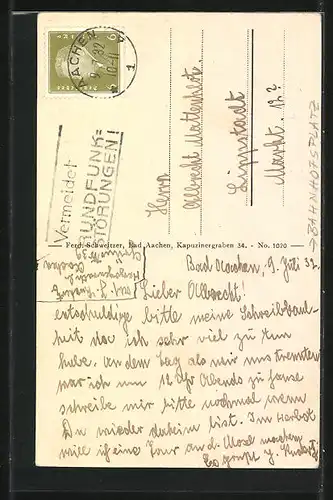 AACHEN
9.7.32
10-11
1
Vermeidet
RUNDFUNK=
STÖRUNGEN!
Herrn
Albrecht
Lippstadt
Markt. 13?
→ BAHNHOFSPLATZ
Ferd. Schweitzer, Bad Aachen, Kapuzinergraben 34. - No. 1020
Bad Aachen, 9. Juli 32
Lieber Albrecht!
entschuldige bitte meine Schreibfaul-
heit da ich sehr viel zu tun
habe. An dem Tag als wir uns trennten
war ich um 12 Uhr Abends zu hause
schreibe mir bitte nochmal wenn
Du wieder daheim bist. Im Herbst
will ich eine Tour an d. Mosel machen
Es grüsst